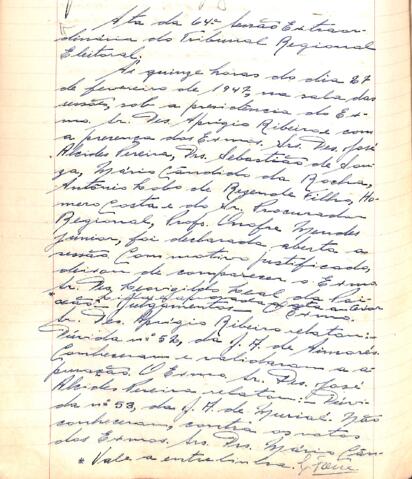 Ata da 64ª Sessão Extraor-
dinária do Tribunal Regional
Eleitoral.
Às quinze horas do dia 27
de fevereiro de 1947, na sala das
sessões, sob a presidência do Ex-
mo. Sr. Des. Aprígio Ribeiro e com
a presença dos Exmos. Srs. Des. José
Alcides Pereira, Drs. Sebastião de Sou-
za, Mário Cândido da Rocha,
Antônio Lobo de Rezende Filho, Ho-
mero Costa e do Sr. Procurador
Regional, Prof. Onofre Mendes
Júnior, foi declarada aberta a
sessão. Com motivo justificado,
deixou de comparecer o Exmo
Sr. Des. Leovigildo Leal da Pai-
xão. Lida, foi aprovada a ata anterior
Julgamentos O Exmo.
Sr. Des. Aprígio Ribeiro relatou:-
Dúvida nº 52, da J. A. de Aimorés.
Conheceram e validaram a a-
puração. O Exmo. Sr. Des. José
Alcides Pereira relatou:- Dúvi-
da nº 53, da J. A. de Muriaé. Não
conheceram, contra os votos
dos Exmos. Srs. Drs. Mário Cân-
* Vale a entrelinha.